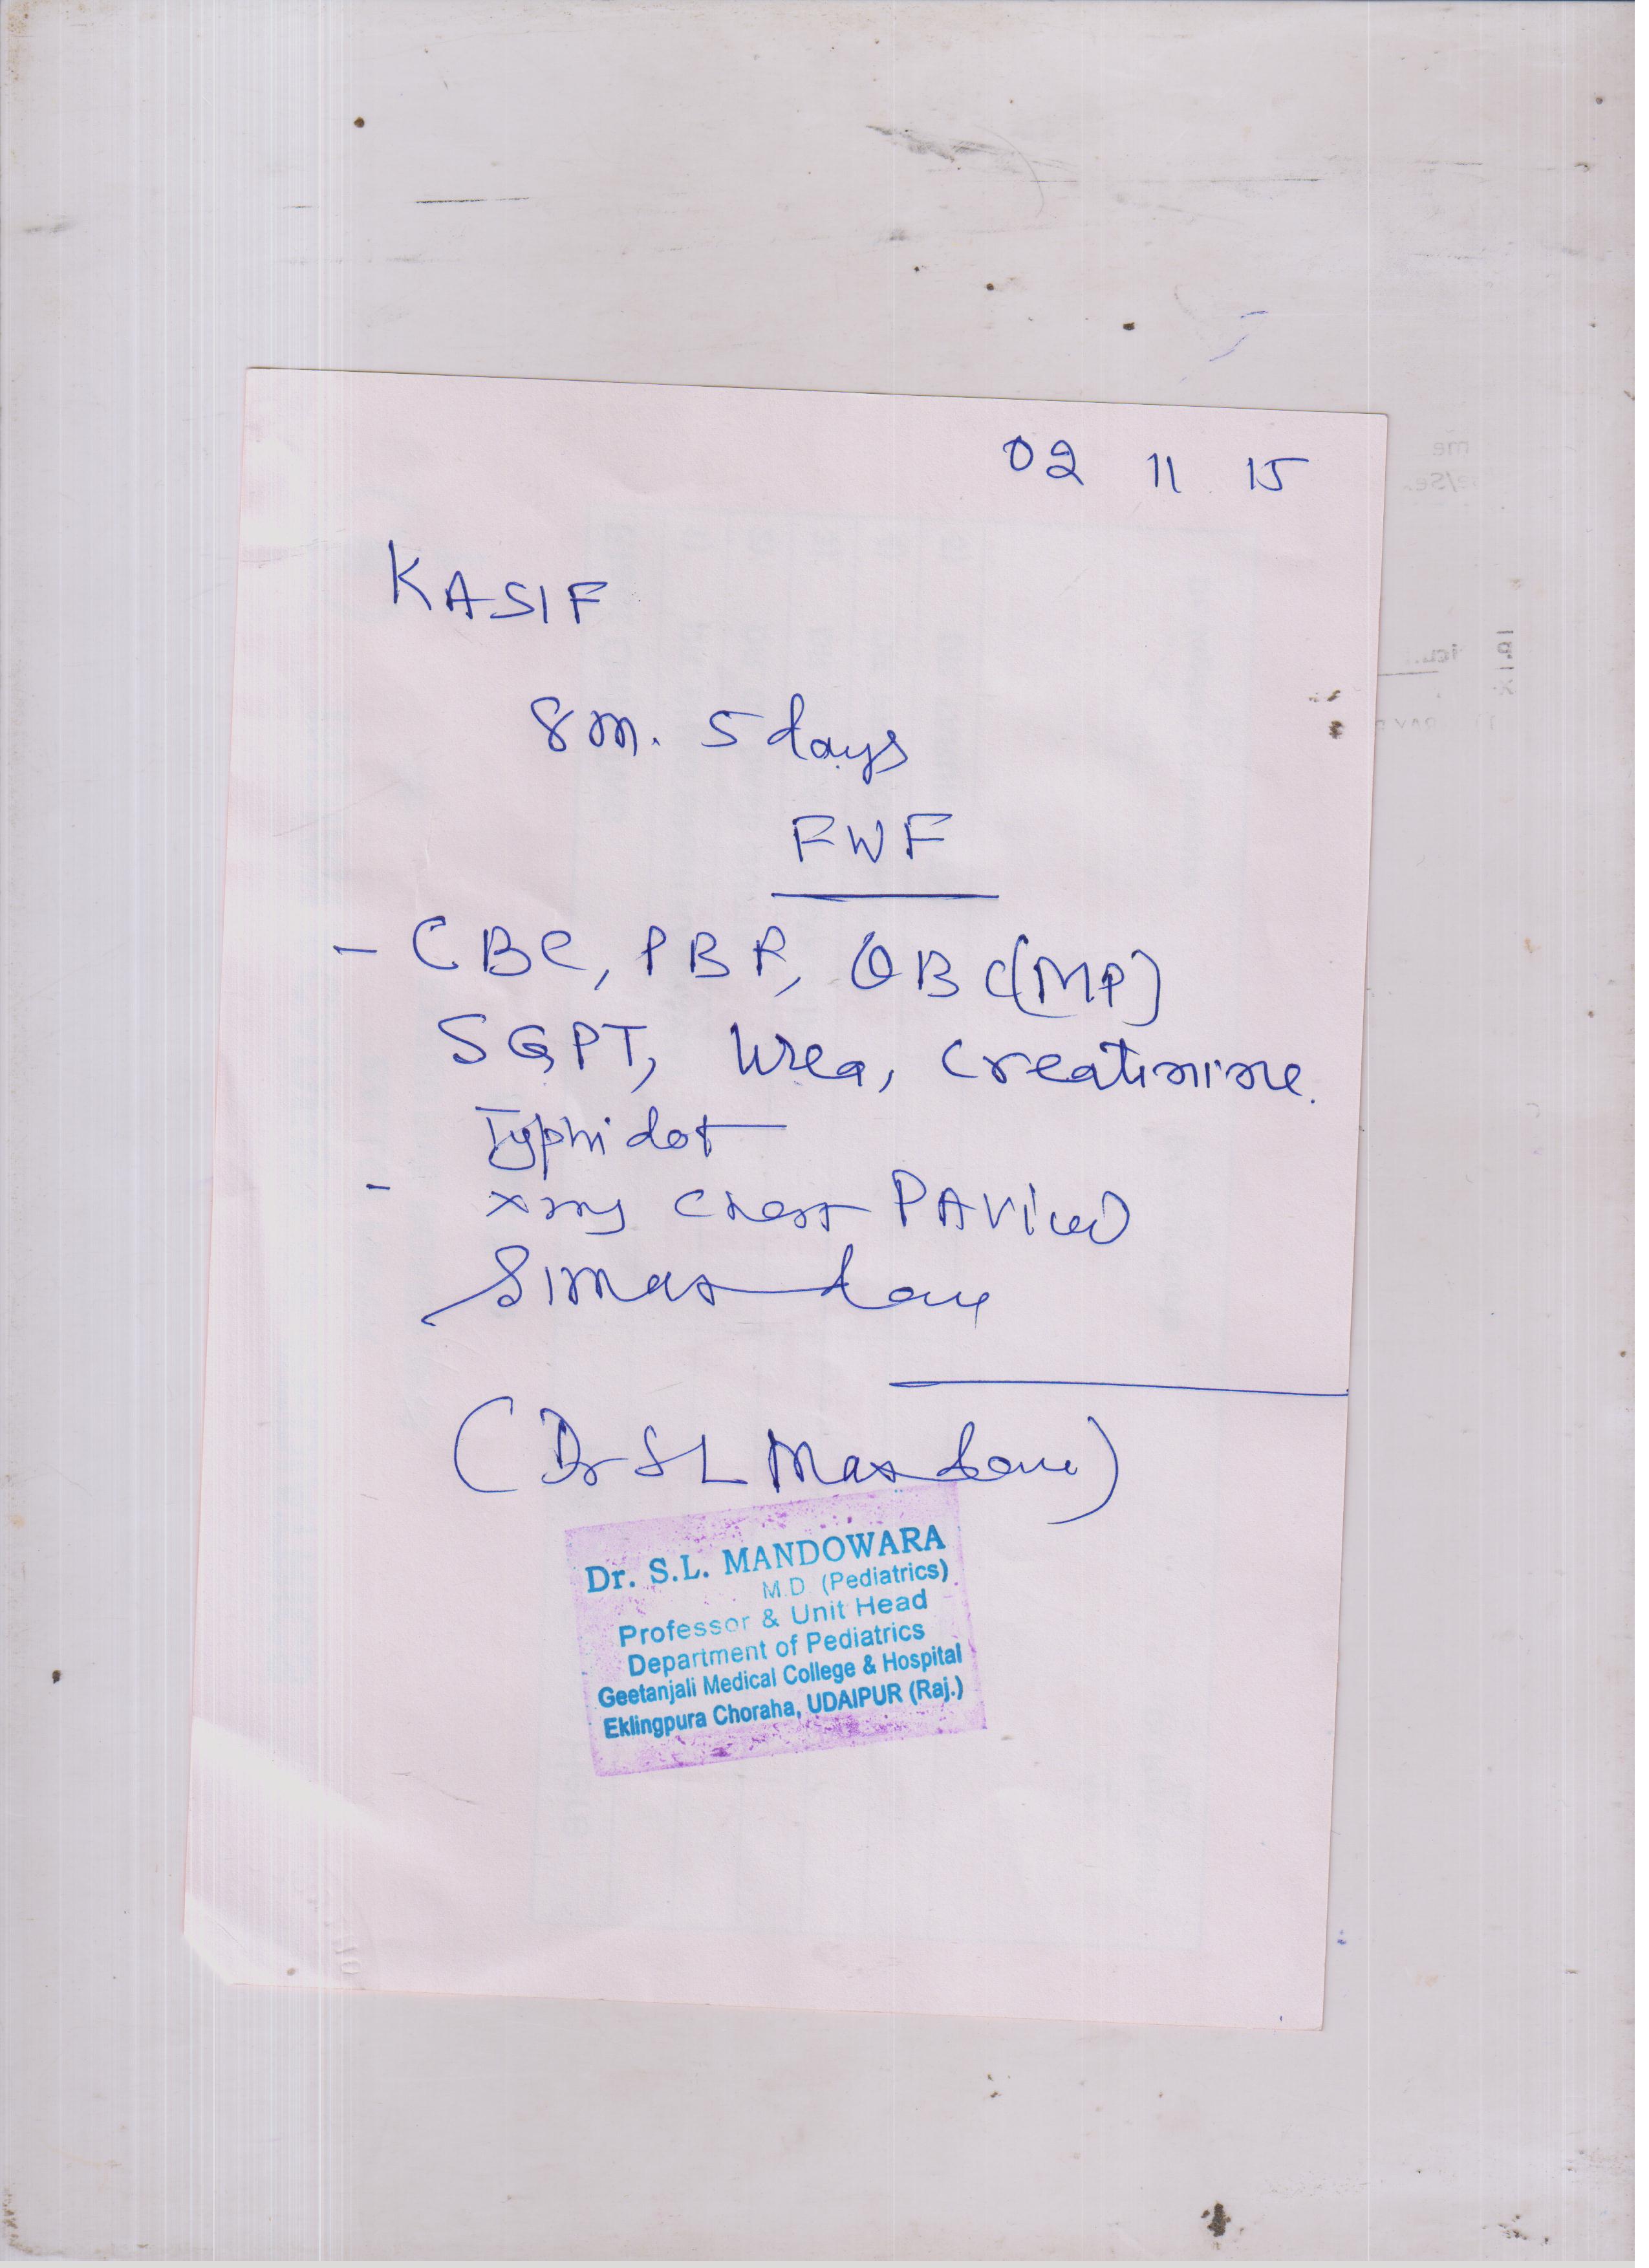 02 11 15
KASIF
8 m. 5 days
FWF
- CBC, PBF, QBC (MP)
SGPT, Urea, Creatinine.
Typhi dot
- xray chest PA View
(Dr S L Mandowara)
Dr. S.L. MANDOWARA
M.D. (Pediatrics)
Professor & Unit Head
Department of Pediatrics
Geetanjali Medical College & Hospital
Eklingpura Choraha, UDAIPUR (Raj.)